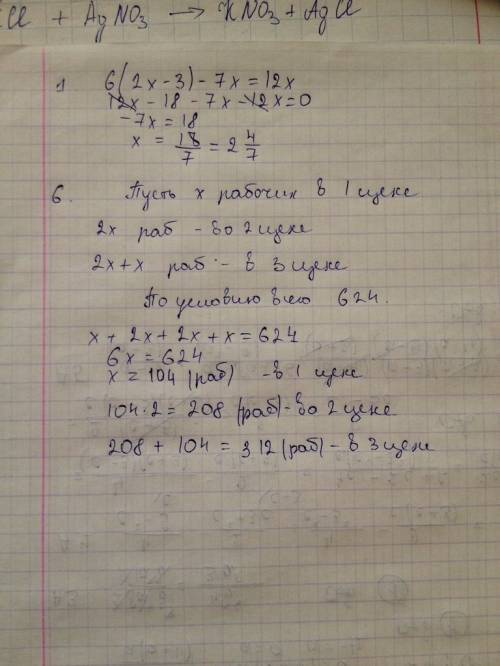 Cl + AgNO3 → KNO3 + AgCl
1 6(2x-3)-7x=12x
12x-18-7x-12x=0
-7x=18
x = 18/7 = 2 4/7
6. Пусть x рабочих в 1 цехе
2x раб - во 2 цехе
2x+x раб - в 3 цехе
По условию всего 624.
x + 2x + 2x + x = 624
6x = 624
x = 104 (раб) - в 1 цехе
104·2 = 208 (раб) - во 2 цехе
208 + 104 = 312 (раб) - в 3 цехе